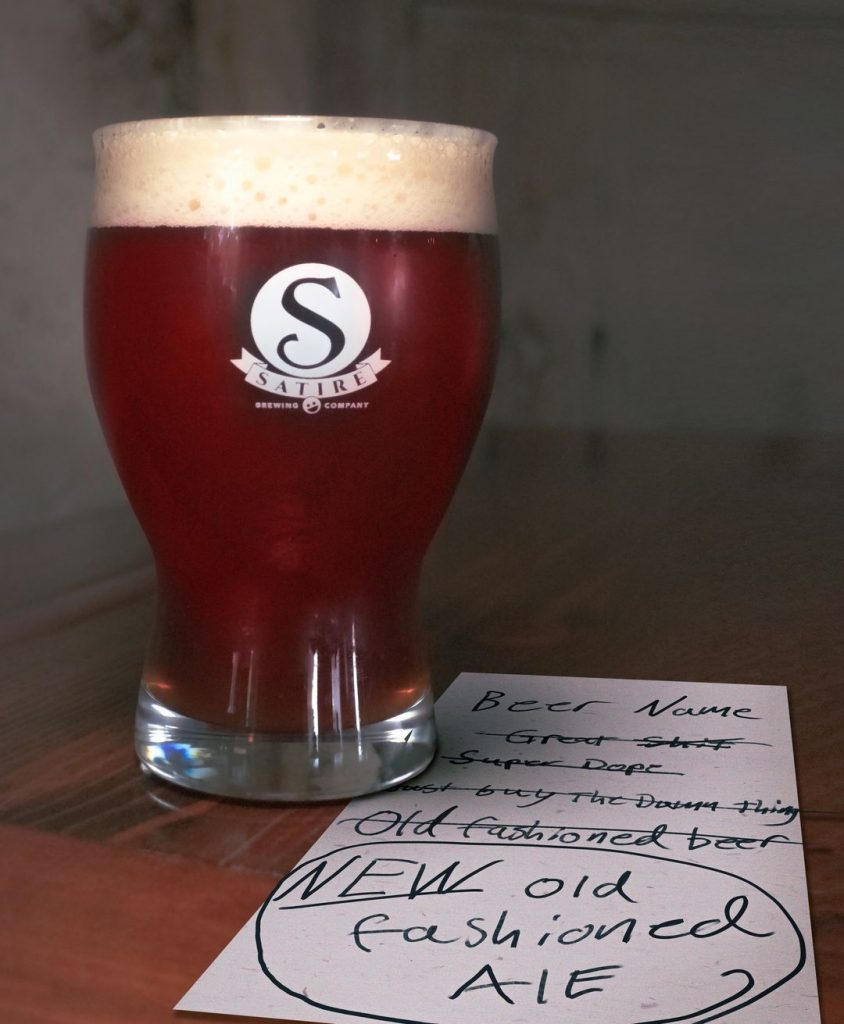 S
SATIRE
BREWING COMPANY
Beer Name
Great Shit
Super Dope
Just buy The Damn Thing
Old fashioned beer
NEW old
fashioned
AlE